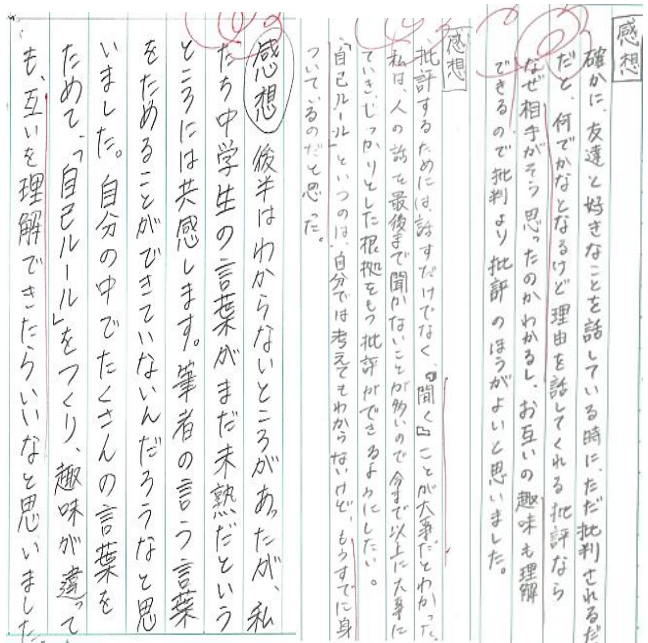 感想
確かに、友達と好きなことを話している時に、ただ批判されるだ
だと、何でかなとなるけど理由を話してくれる批評なら
なぜ相手がそう思ったのかわかるし、お互いの趣味も理解
できるので批判より批評のほうがよいと思いました。
感想
批評するためには、話すだけでなく、「聞く」ことが大事だとわかった。
私は、人の話を最後まで聞かないことが多いので今まで以上に大事に
ていき、じっかりとした根拠をもつ批評ができるようにしたい。
「自己ルール」というのは、自分では考えてもわからないけど、もうすでに身
ついているのだと思った。
感想 後半はわからないところがあったが、私
たち中学生の言葉がまだ未熟だという
ところには共感します。筆者の言う言葉
をためることができていないんだろうなと思
いました。自分の中でたくさんの言葉を
ためて、「自己ルール」をつくり、趣味が違って
も、互いを理解できたらいいなと思いました。